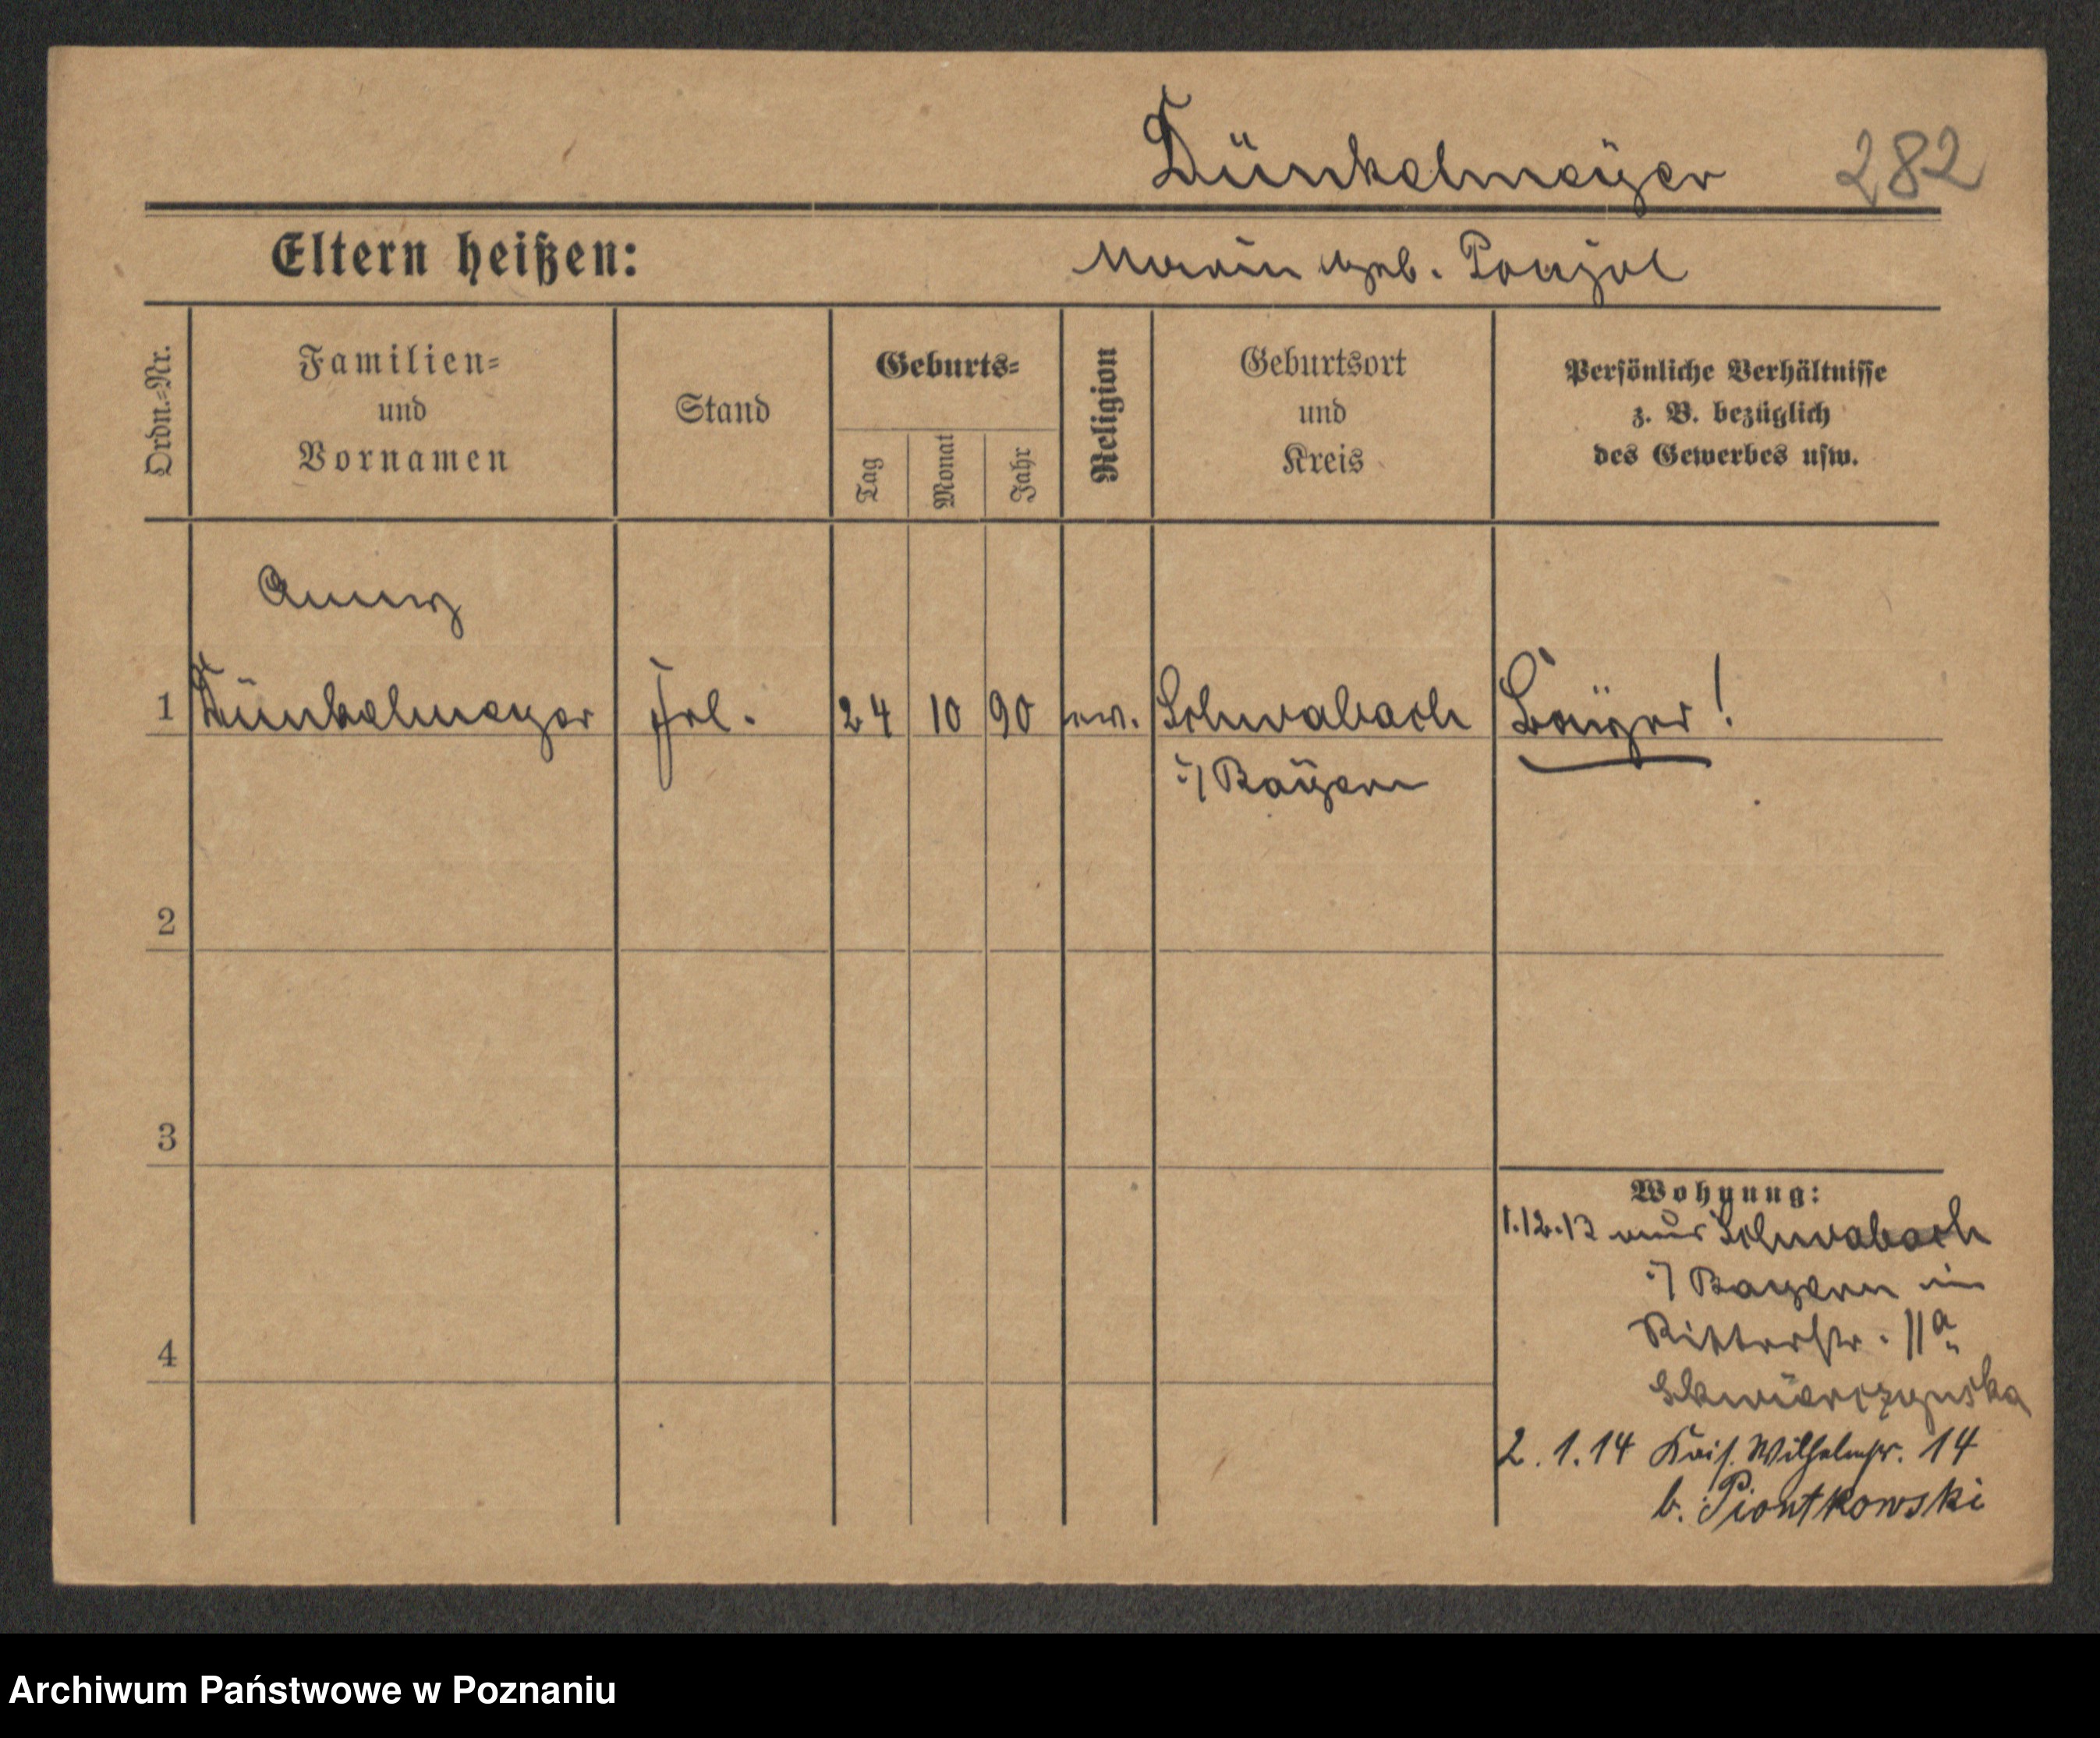 Dünkelmeÿer 282
Eltern heißen: geb.
Ordn.-Nr. Familien- und Vornamen Stand Geburts- Tag Monat Jahr Religion Geburtsort und Kreis Persönliche Verhältnisse z. B. bezüglich des Gewerbes usw.
1 Dünkelmeyer Frl. 24 10 90 ev. Schwabach Baÿer!
i/ Baÿern
2
3
4
Wohnung:
1.12.13 aus Schwabach
i/ Bayern in
Ritterstr. 11a
2.1.14 Kais. Wilhelmstr. 14
b. Piontkowski
Archiwum Państwowe w Poznaniu